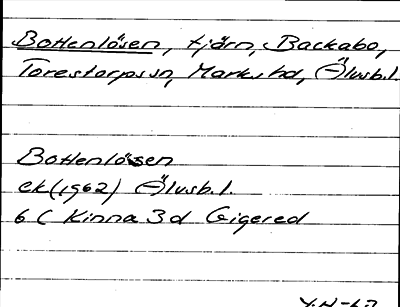 Bottenlösen, tjärn, Backabo,
Torestorps sn, Marks hd, Älvsb. l.
Bottenlösen
ek (1962) Älvsb. l.
6 C Kinna 3 d Gigered